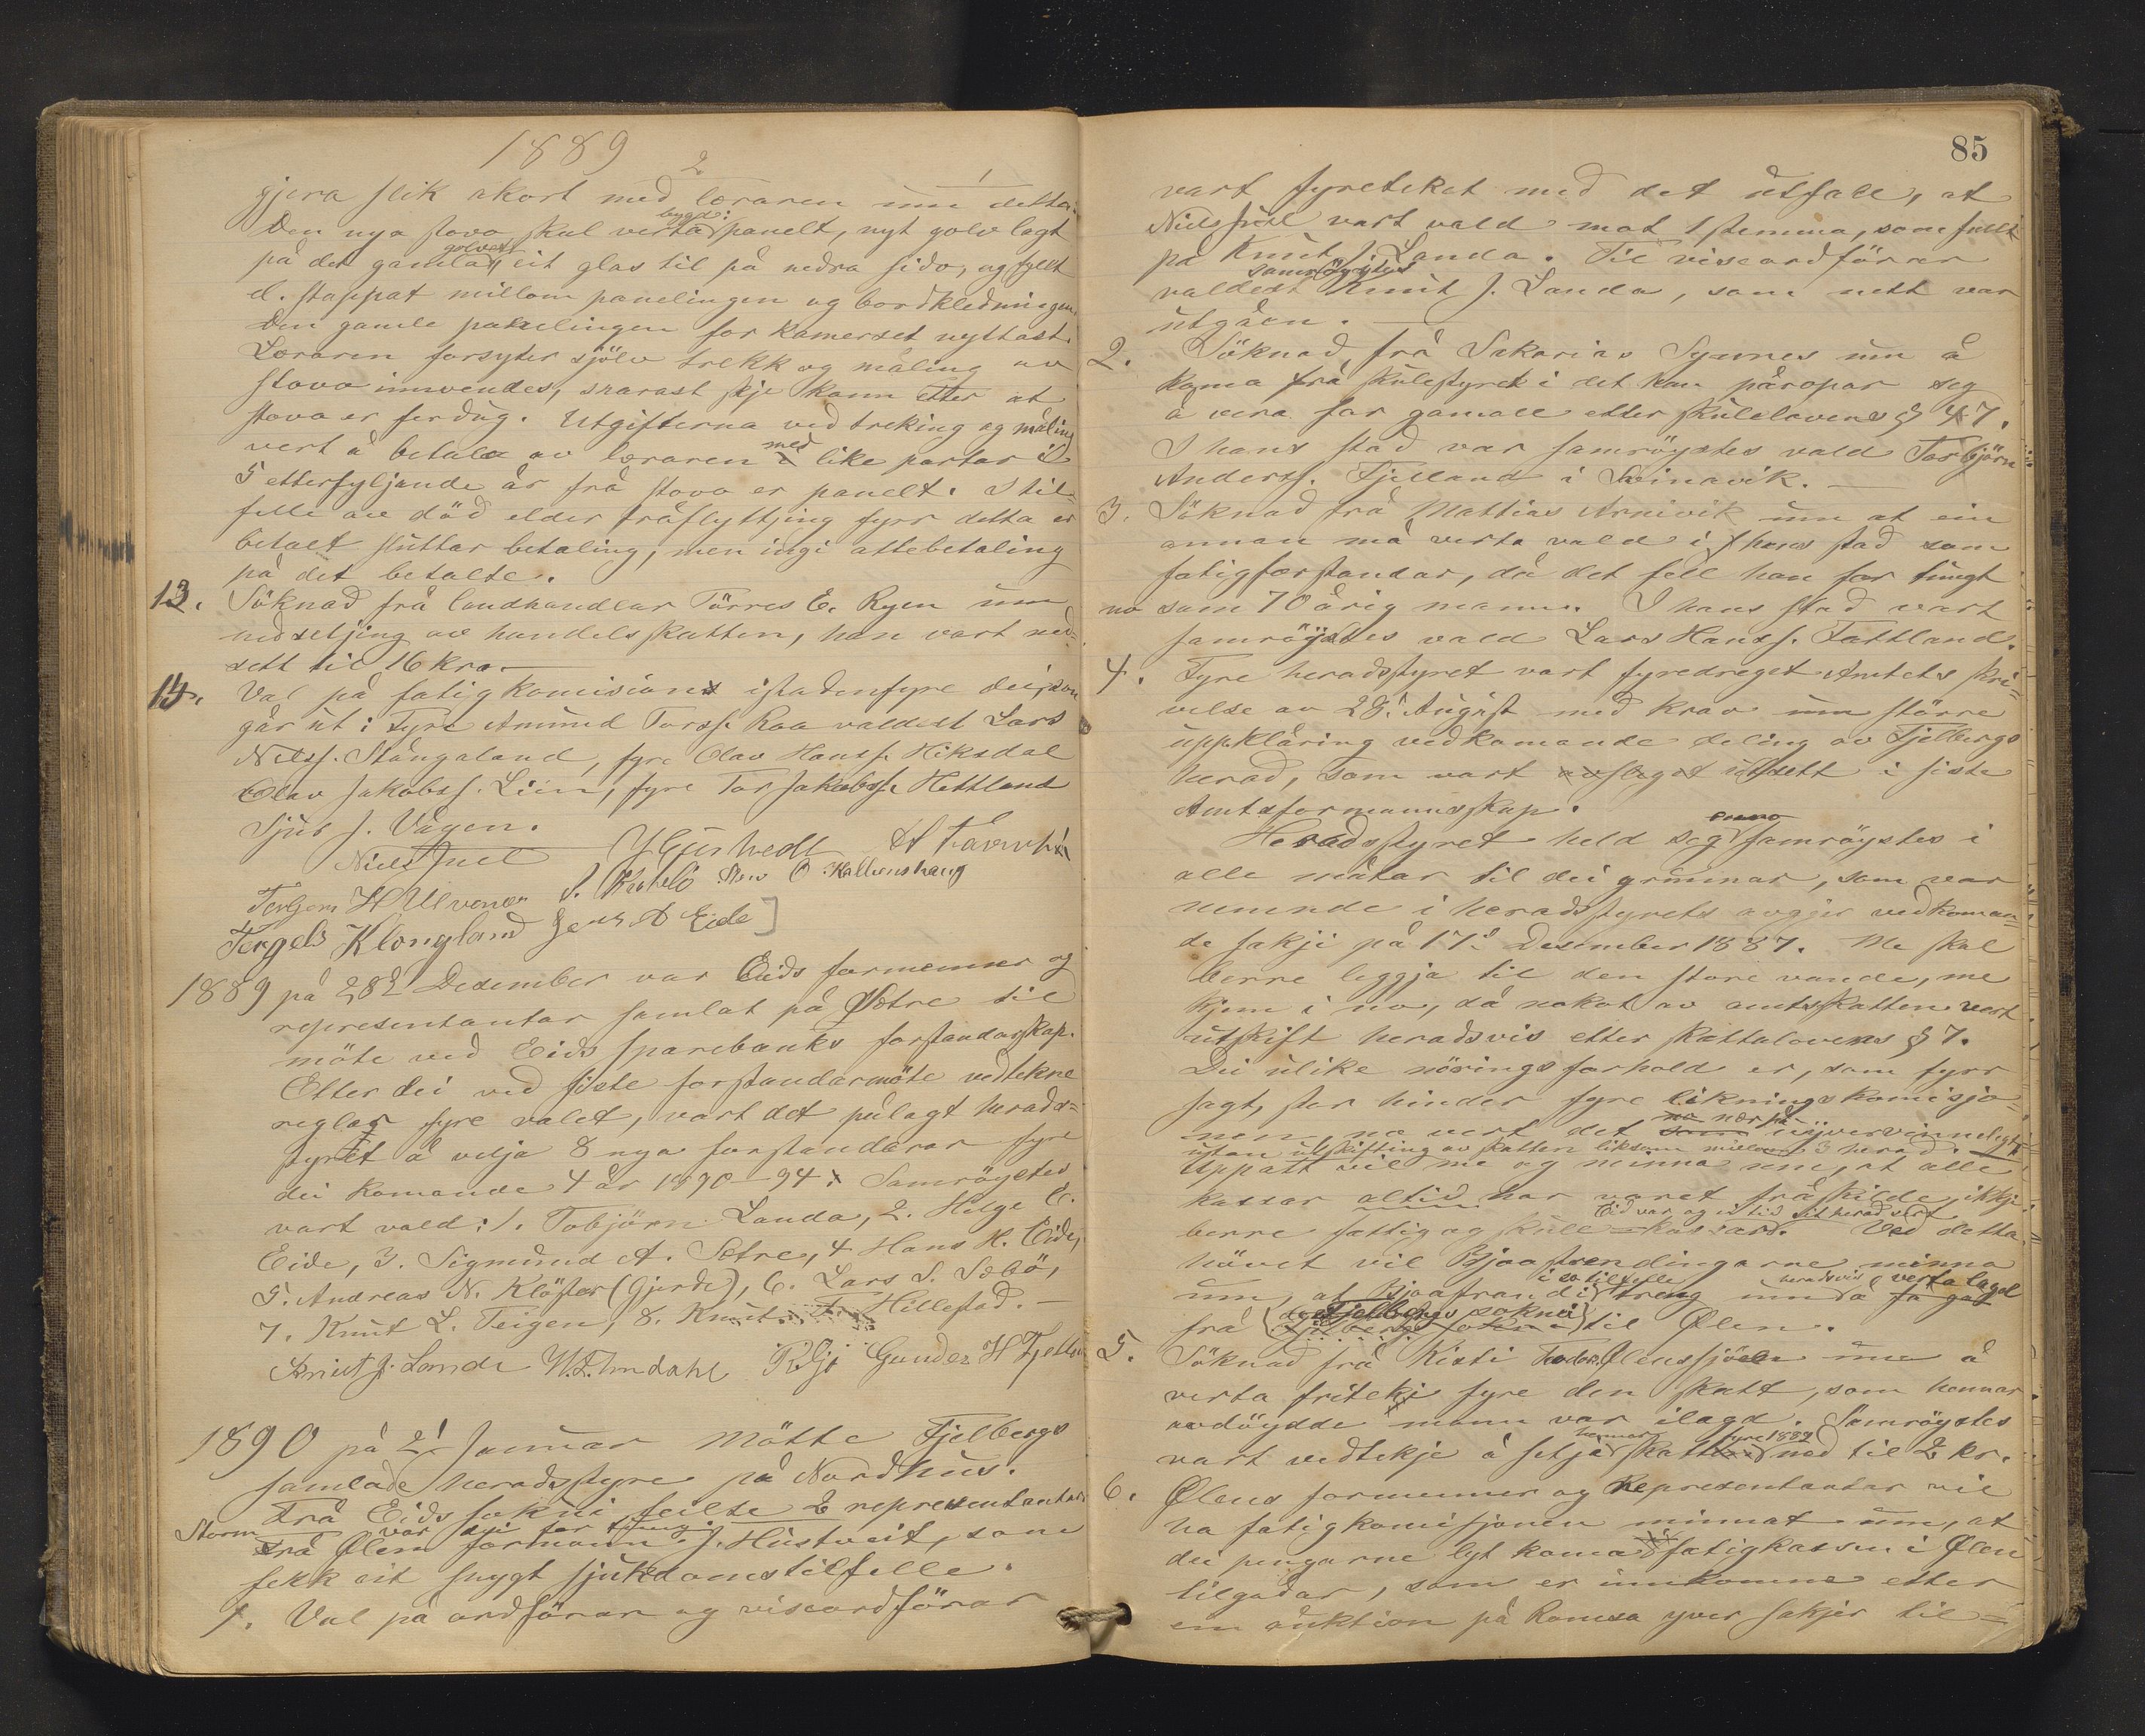 1889
2
gjera slik akort med læraren um detta.
bygd:
Den nya stova skal verta panelt, nyt golv lagt
golvet
på det gamla, eit glas til på nedra sido, og fyllt
el. stappat millom panelingen og bordkledningen.
Den gamle panelingen for kamerset nyttast.
Læraren forsyter sjölv trekk og måling av
stova innvendes, snarast skje kann etter at
stova er ferdug. Utgifterna ved treking og måling
med
vert å betala av læraren i like partar i
5 etterfyljande år frå stova er panelt. I til-
felle av död elder fråflyttjing fyrr detta er
betalt sluttar betaling, men ingi attebetaling
på det betalte.
13. Söknad frå landhandlar Törres E. Ryen um
nedsetjing av handelsskatten, han vart ned-
sett til 16 kro.
14. Val på fatigkomision istadenfyre dei, som
går ut: Fyre Amund Torss. Raa valdest Lars
Nilss. Stångaland, fyre Olav Hanss. Hiksdal
Olav Jakobss. Liim, fyre Tor Jakobss. Hettland
Sjur J. Vågen.
Niels Juel
H Ulvenes O Kallevshaug
Tergels Klongland Jens A Eide
1889 på 28d Desember var Eids formenner og
representantar samlat på Sætre til
möte ved Eids Sparebanks forstandarskap.
Etter dei ved siste forstandarmöte vedtekne
reglar fyre valet, vart det pålagt herads-
styret å velja 8 nya forstandarar fyre
dei komande 4 år 1890-94. Samröystes
vart vald: 1. Tobjörn Landa, 2. Helge E.
Eide, 3. Sigmund A. Sætre, 4 Hans H. Eide,
5. Andreas N. Klöster (Gjerde), 6. Lars S. Sæbö,
7. Knut L. Teigen, 8. Knut Hillestad.
Knut J. Landa Gunder H
1890 på 2d Januar mötte Fjelbergs
samlade heradsstyre på Nordhus.
Frå Eids sokni feilte 2 representantar
Storm var
Frå Ølen formann J. Hustveit, som
fekk eit snygt sjukdomstilfelle.
1. Val på ordförar og viseordförar
85
vart fyreteket med det utfall, at
Niels Juel vart vald mot 1 stemma, som fullt
på Knut J. Landa. Til viseordförar
samröystes
valdest Knut J. Landa, som nett var
utgåen.
2. Söknad frå Sakarias Synnes um å
koma frå skulestyret i det han påropar seg
å vera for gamall etter skulelovens § 47.
I hans stad var samröystes vald Torbjörn
Anderss. Fjelland i Leinavik.
3. Söknad frå Mattias Arnivik um at ein
annan må verta vald i hans stad som
fatigforstandar, då det fell han for tungt
no som 70 årig mann. I hans stad vart
samröystes vald Lars Hanss. Tattland.
4. Fyre heradsstyret vart fyredreget Amtets skri-
velse av 28. August med krav um större
uppklåring vedkomande deling av Fjelbergs
herad, som vart utsett i siste
Amtsformannskap.
Heradsstyret held seg samröystes i
alle måtar til dei grunnar, som var
nemnde i heradsstyrets avgjer vedkoman-
de sakji på 17d Desember 1887. Me skal
berre leggja til den store vande, me
kjem i no, då nokot av amtsskatten vert
utskift heradsvis etter skattalovens § 7.
Dei ulike näringsforhold er, som fyrr
sagt, stor hinder fyre likningskomisjo-
nær på
nen no vert det uyvervinnelegt
utan utskifting av skatten liksom millom 3 herad.
Uppatt vil me og minna um, at alle
kassar altid har varet fråskilde, ikkje
Eid var og ei tid eit herad sert
berre fattig og skule-kassar. Ved detta
hövet vil Bjoastrendingarne minna
i so tilfelle heradsvis verta laget
um, at Bjoastrandi treng um å få gå
Fjelbergs sokni
frå til Ølen.
5. Söknad frå Kisti Ølensjöen um å
verta friteki fyre den skatt, som hennar
avdöydde mann var ilagd. Samröystes
hennar fyre 1889
vart vedtekje å setja skatten ned til 2 kr.
6. Ølens formenner og Representantar vil
ha fatigkomisjonen minnat um, at
i
dei pengarne lyt koma fatigkassen i Ølen
tilgodar, som er innkomne etter
ein auktion på Ramsa yver sakjer til-